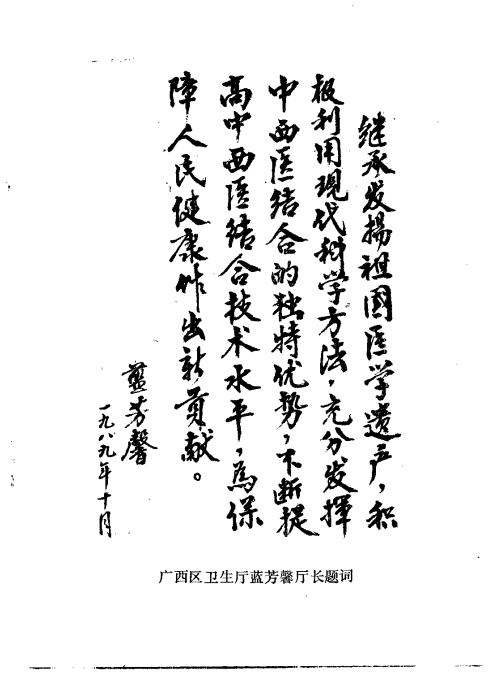 继承发扬祖国医学遗产，积
极利用现代科学方法，充分发挥
中西医结合的独特优势，不断提
高中西医结合技术水平，為保
障人民健康作出新贡献。
藍芳馨
一九八九年十月
广西区卫生厅蓝芳馨厅长题词